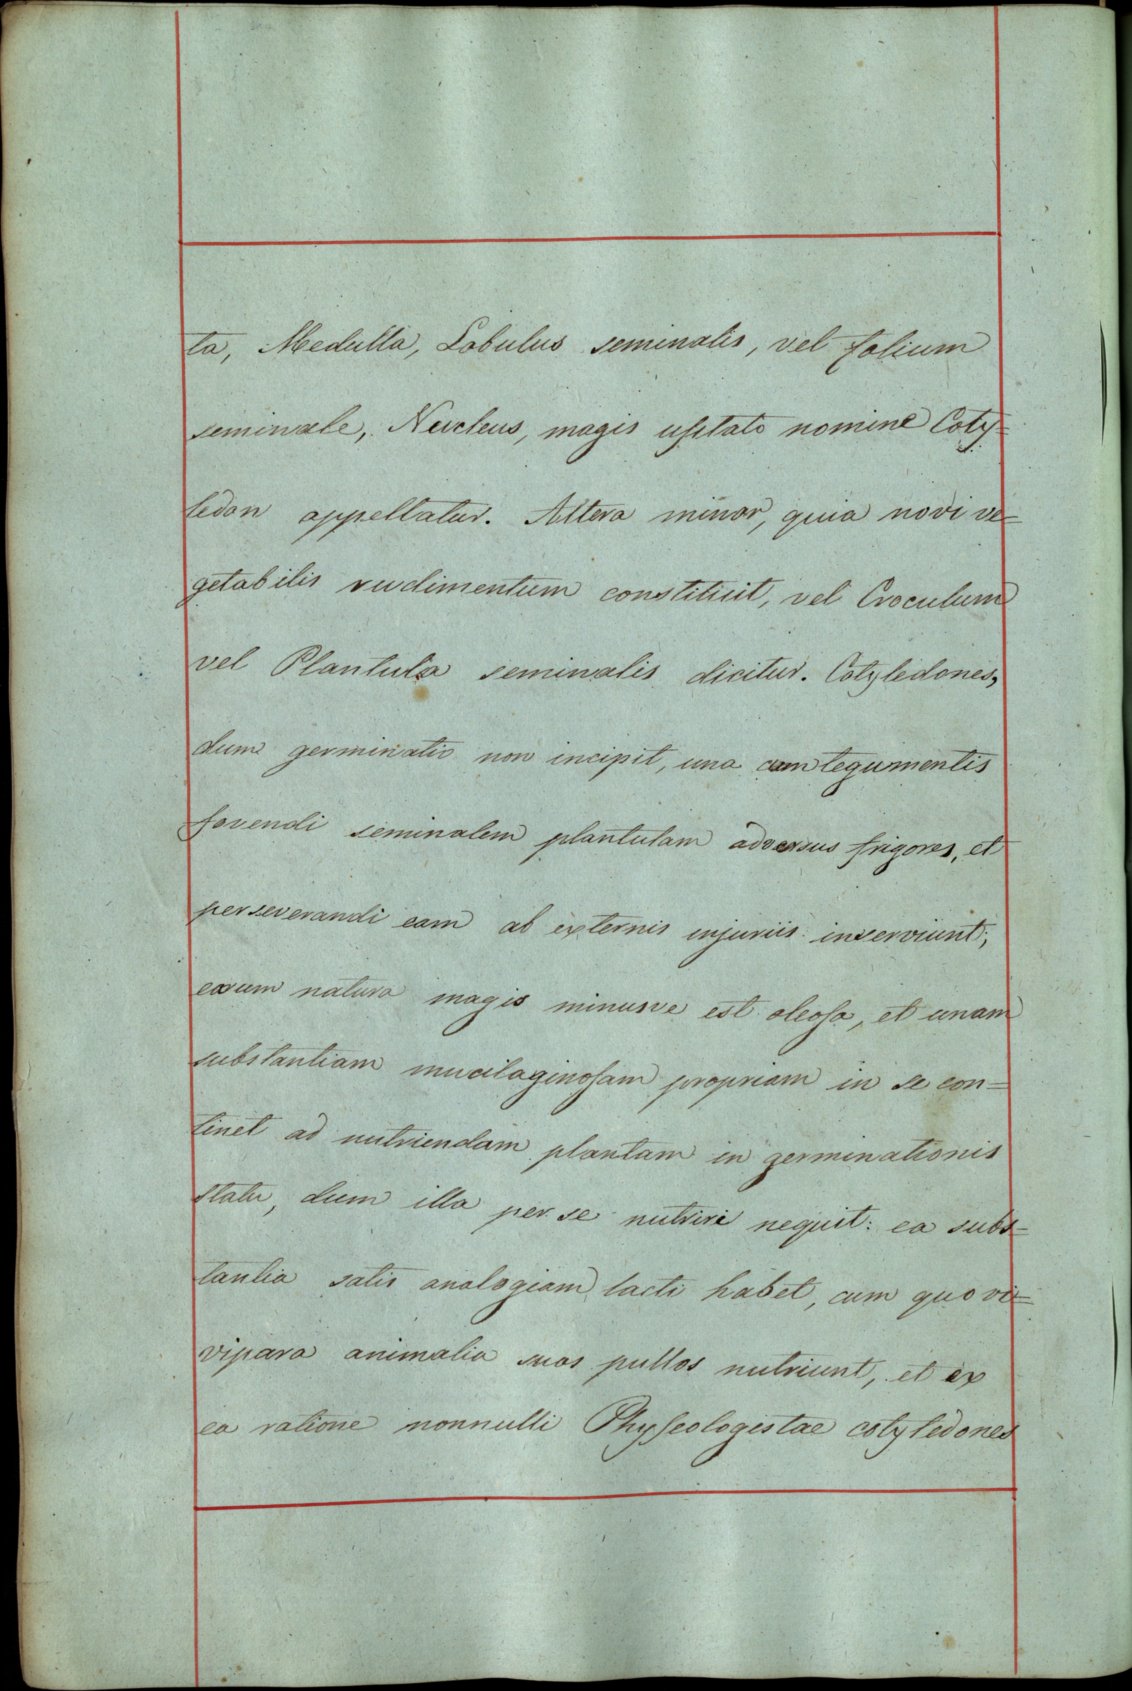 ta, Medulla, Lobulus seminalis, vel folium
seminale, Nucleus, magis usitato nomine Coty=
ledon appellatur. Altera minor, quia novi ve=
getabilis rudimentum constituit, vel Croculum
vel Plantula seminalis dicitur. Cotyledones,
dum germinatio non incipit, una cum tegumentis
fovendi seminalem plantulam adversus frigores, et
perseverandi eam ab externis injuriis inserviunt;
earum natura magis minusve est oleosa, et unam
substantiam mucilaginosam propriam in se con=
tinet ad nutriendam plantam in germinationis
statu, dum illa per se nutriri nequit: ea subs=
tantia satis analogiam lacti habet, cum quo vi=
vipara animalia suos pullos nutriunt, et ex
ea ratione nonnulli Physeologistae cotyledones